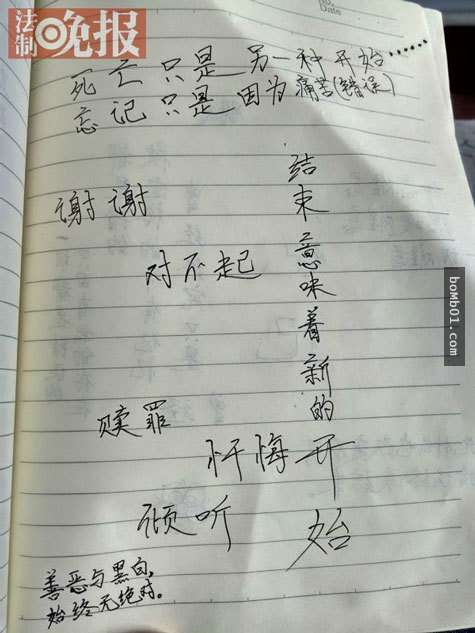 法制晚报
Date
死亡只是另一种开始……
忘记只是因为痛苦(错误)
谢谢
对不起
结束意味着新的开始
赎罪
忏悔
倾听
善恶与黑白,
始终无绝对。
boMb01.com